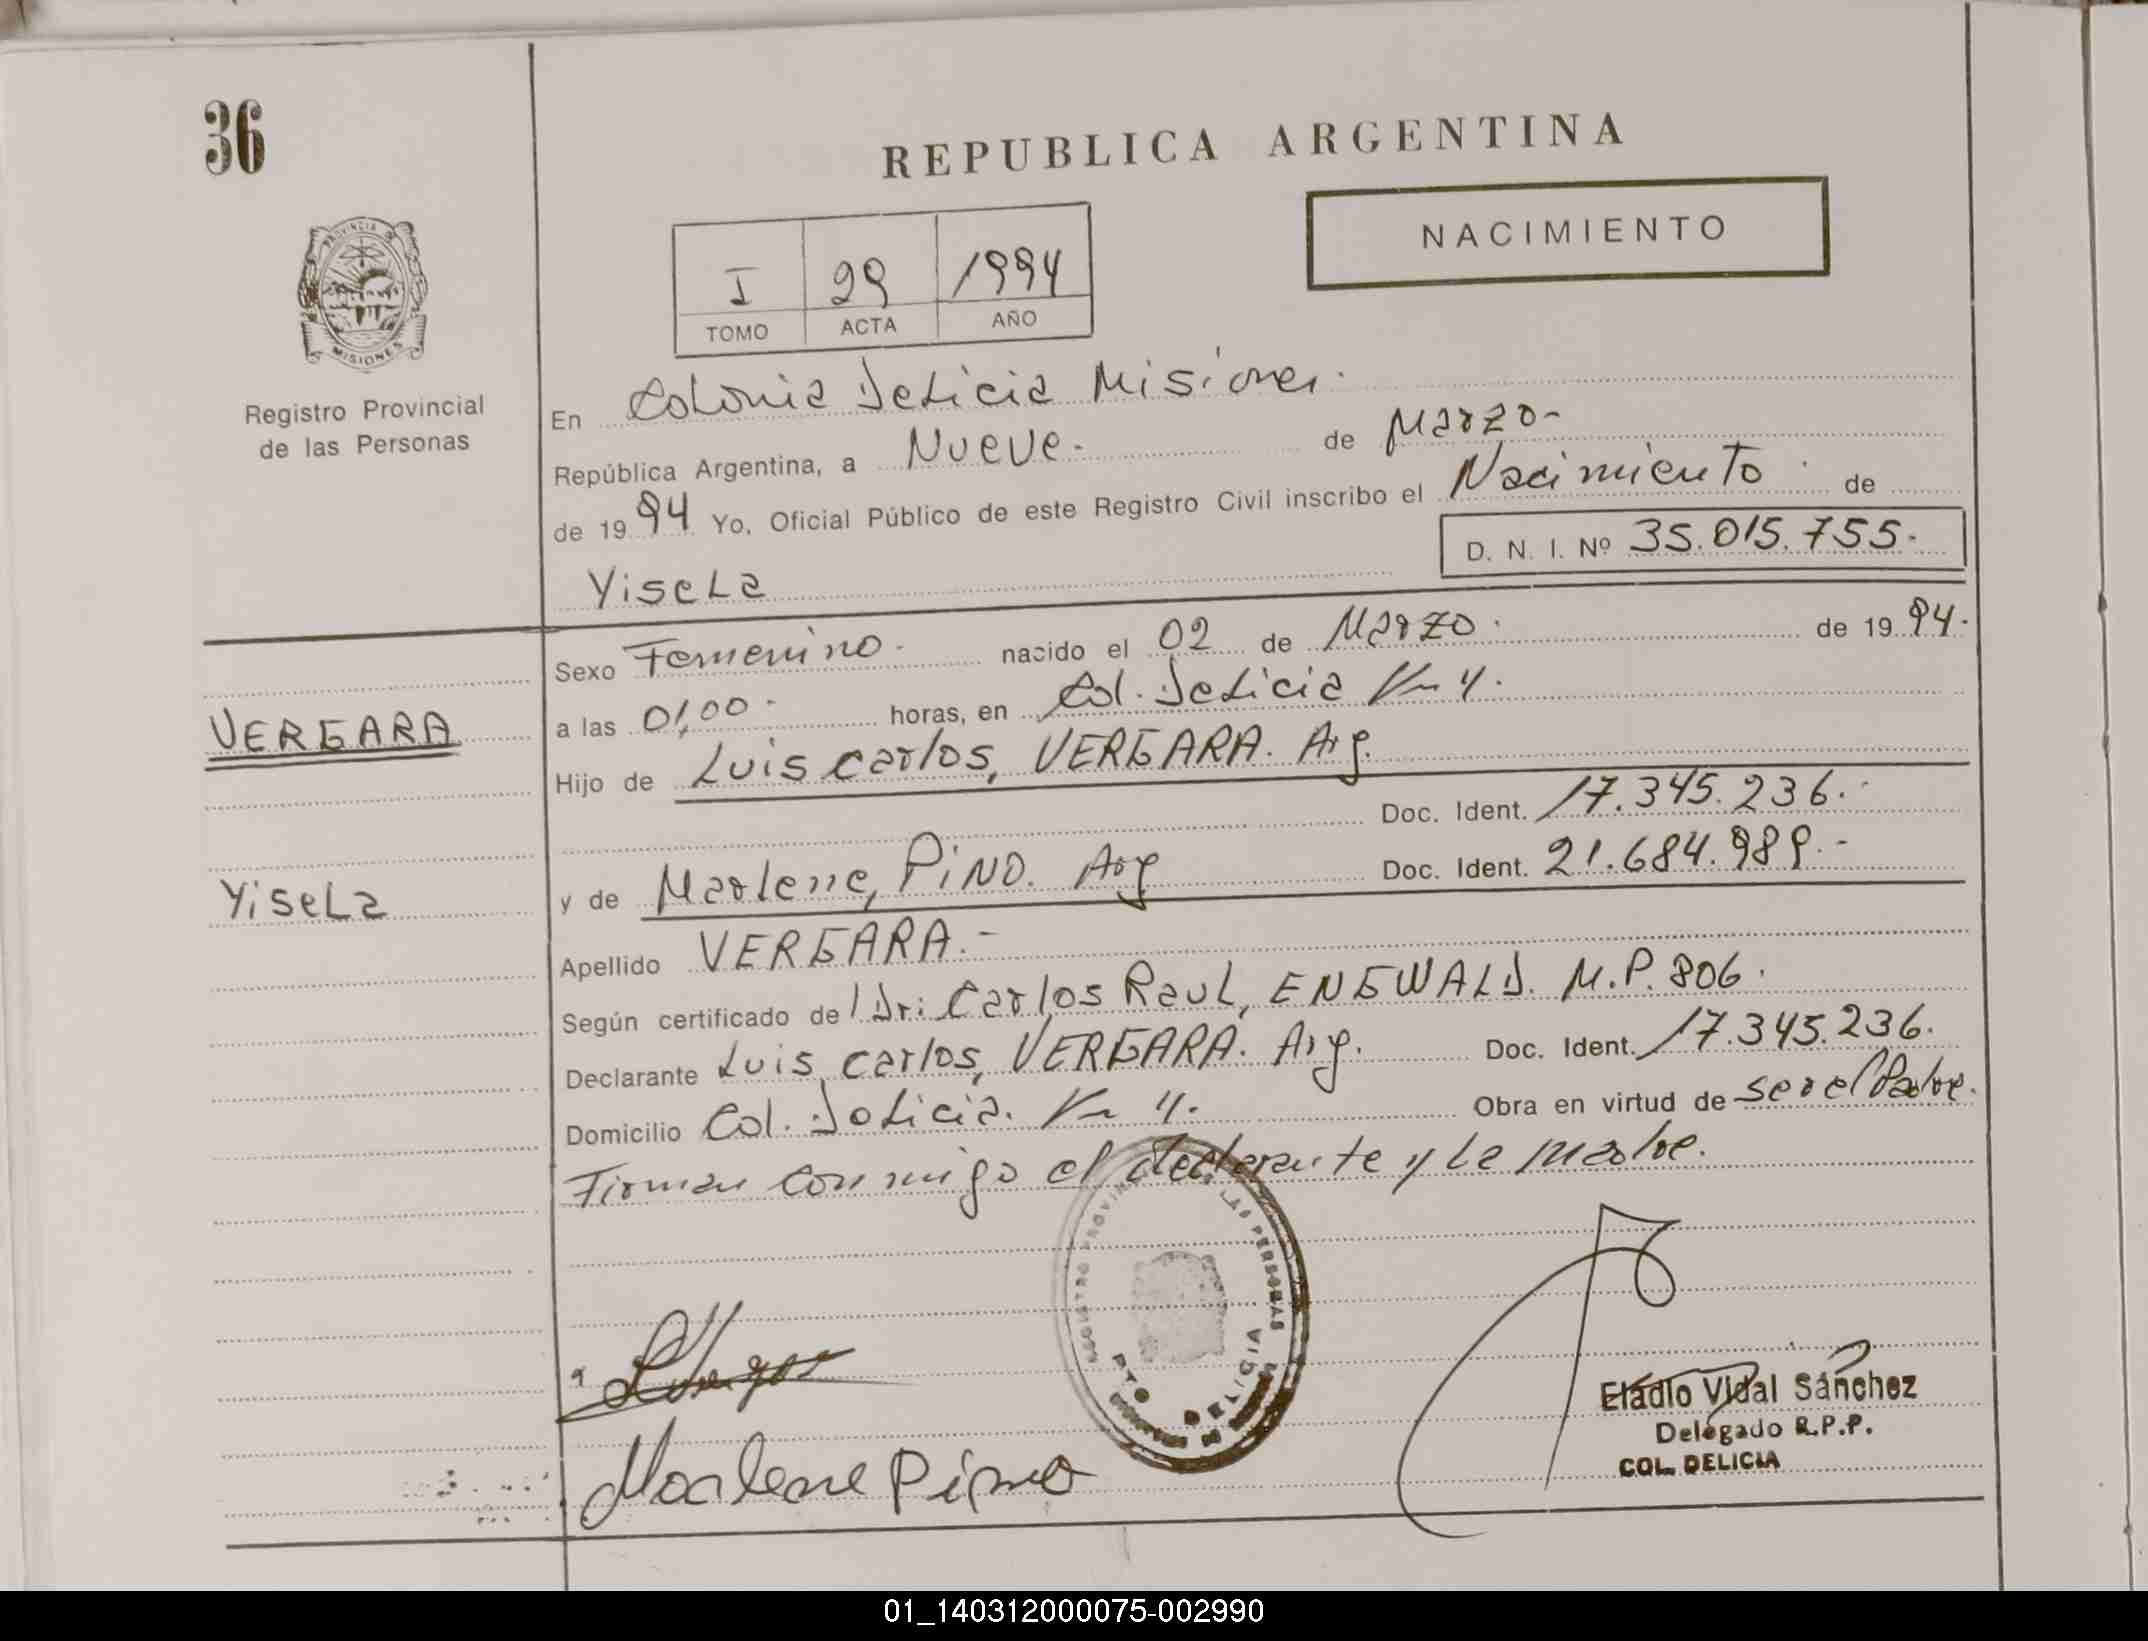 36
REPUBLICA ARGENTINA
NACIMIENTO
I 29 1994
TOMO ACTA AÑO
PROVINCIA DE
MISIONES
Registro Provincial
de las Personas
En Colonia Delicia Misiones.
República Argentina, a Nueve.- de Marzo-
de 1994 Yo, Oficial Público de este Registro Civil inscribo el Nacimiento de
D. N. I. Nº 35.015.755.-
Yisela
Sexo Femenino.- nacido el 02 de Marzo. de 1994.
a las 01,00- horas, en Col. Delicia Km 4.
VERGARA
Hijo de Luis carlos, VERGARA. Arg.
Doc. Ident. 17.345.236.-
Yisela
y de Marlene, PiNO. Arg Doc. Ident. 21.684.989.-
Apellido VERGARA.-
Según certificado de Dr: Carlos Raul, ENGWALD. M.P. 806.
Declarante Luis carlos, VERGARA. Arg. Doc. Ident. 17.345.236.
Domicilio Col. Delicia. Km 4. Obra en virtud de ser el Padre.
Firman conmigo el declarante y la madre.
REGISTRO PROVINCIAL DE LAS PERSONAS
Marlene Pino
Eladio Vidal Sánchez
Delegado R.P.P.
COL. DELICIA
01_140312000075-002990